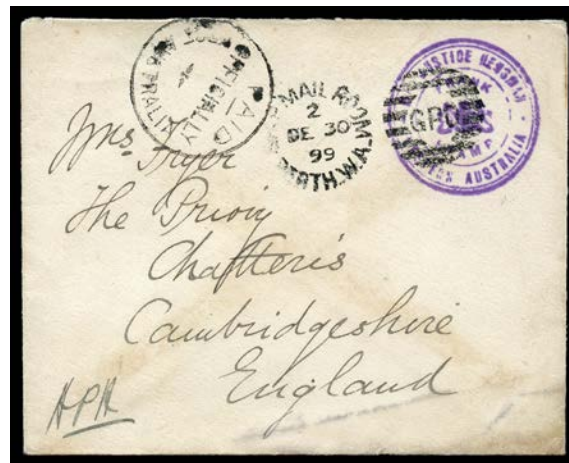 OFFICIALLY
PAID
MAIL ROOM
2
DE 30
99
PERTH. W.A.
GPO
JUSTICE HENSMAN
FRANK
STAMP
WESTERN AUSTRALIA
Mrs. Fryer
The Priory
Chatteris
Cambridgeshire
England
APH